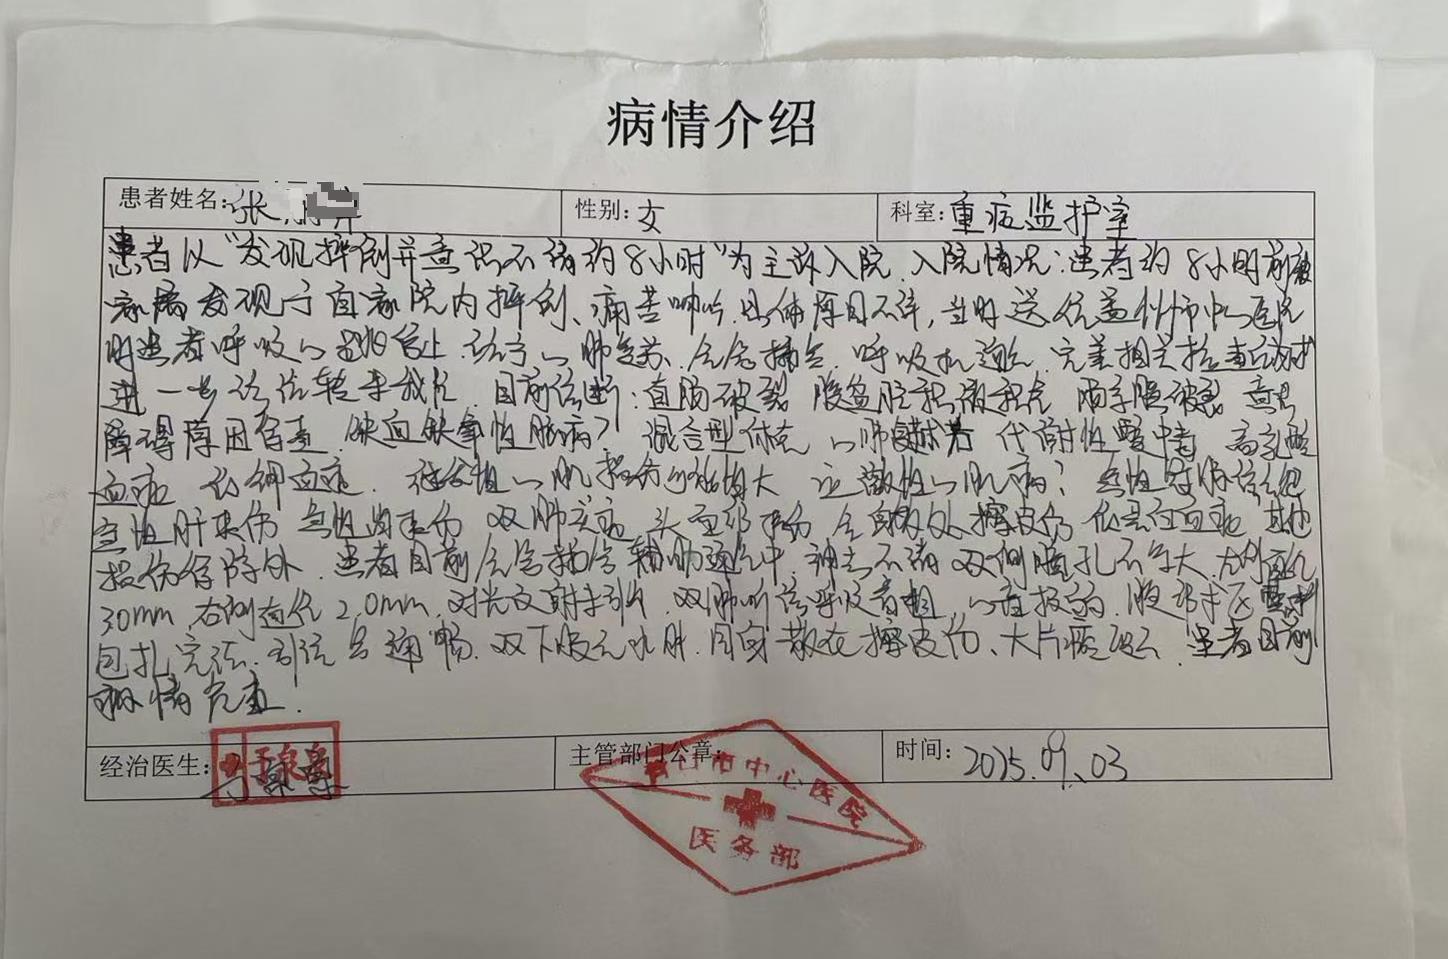 病情介绍
患者姓名: 张 性别: 女 科室: 重症监护室
患者以“发现摔倒并意识不清约8小时”为主诉入院. 入院情况: 患者约8小时前被
家属发现于自家院内摔倒、痛苦呻吟, 具体原因不详, 当时送往盖州市中心医院
时患者呼吸心跳停止. 给予心肺复苏、气管插管、呼吸机通气. 完善相关检查
进一步诊治转来我院. 目前诊断: 直肠破裂 腹盆腔积液积气 意识
障碍原因待查 缺血缺氧性脑病? 混合型休克 心肺复苏 代谢性酸中毒 高乳酸
血症 低钾血症 心肌损伤 增大 应激性心肌病?
急性肝损伤 急性肾损伤 双肺 头面部 擦皮伤 低蛋白血症 其他
损伤待除外. 患者目前气管插管辅助通气中, 神志不清 双侧瞳孔不等大,
30mm, 右侧直径2.0mm, 对光反射未引出, 双肺听诊呼吸音粗, 心音 腹部
包扎完 引流 通畅. 双下肢无水肿. 周身散在擦皮伤、大片瘀 患者目前
病情危重.
经治医生: 主管部门公章: 时间: 2025.09.03
市中心医院
医务部